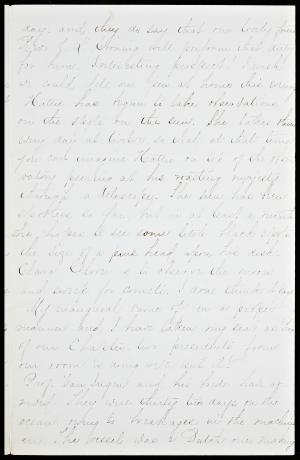 day, and they do say that our lovely friend
Prof. Z X Horning will perform that duty
for him. Interesting prospect! I wish
we could fill our pew at home this evening
Hattie has begun to take observations
on the spots on the sun. She takes them
every day at twelve so that at that time
you can imagine Hattie on top of the Obser-
vatory peering at his roasting majesty
through a telescope. The sun has been
spotless so far, but in at least a month
she hopes to see some little black spots
the size of a pins head, upon his disk.
Clara Glover is to observe the moon
and search for comets. I dont think I can
My inaugural came off in a proper
manner and I have taken my seat as Pres
of our Chapter. two presidents from
our room is doing well isn't it!
Prof. Van Ingen and his bride have ar-
rived. They were thirty two days on the
ocean owing to breakages in the machin-
ery. The vessel was a Dutch one making